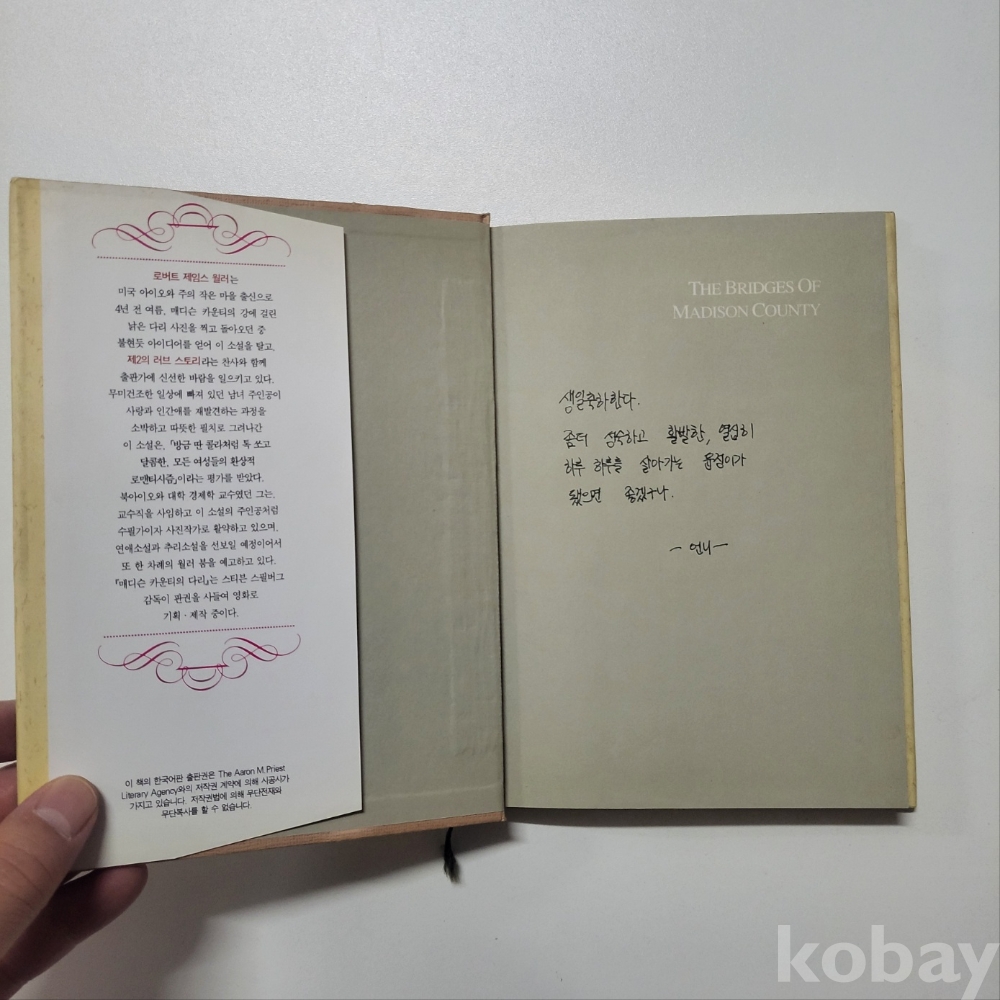 로버트 제임스 월러는
미국 아이오와 주의 작은 마을 출신으로
4년 전 여름, 매디슨 카운티의 강에 걸린
낡은 다리 사진을 찍고 돌아오던 중
불현듯 아이디어를 얻어 이 소설을 탈고,
제2의 러브 스토리라는 찬사와 함께
출판가에 신선한 바람을 일으키고 있다.
무미건조한 일상에 빠져 있던 남녀 주인공이
사랑과 인간애를 재발견하는 과정을
소박하고 따뜻한 필치로 그려나간
이 소설은, 「방금 딴 콜라처럼 톡 쏘고
달콤한, 모든 여성들의 환상적
로맨티시즘」이라는 평가를 받았다.
북아이오와 대학 경제학 교수였던 그는,
교수직을 사임하고 이 소설의 주인공처럼
수필가이자 사진작가로 활약하고 있으며,
연애소설과 추리소설을 선보일 예정이어서
또 한 차례의 월러 붐을 예고하고 있다.
『매디슨 카운티의 다리』는 스티븐 스필버그
감독이 판권을 사들여 영화로
기획·제작 중이다.
이 책의 한국어판 출판권은 The Aaron M.Priest
Literary Agency와의 저작권 계약에 의해 시공사가
가지고 있습니다. 저작권법에 의해 무단전재와
무단복사를 할 수 없습니다.
THE BRIDGES OF
MADISON COUNTY
생일축하한다.
좀더 성숙하고 활발한, 열심히
하루 하루를 살아가는 윤점이가
됐으면 좋겠구나.
- 언니 -
kobay